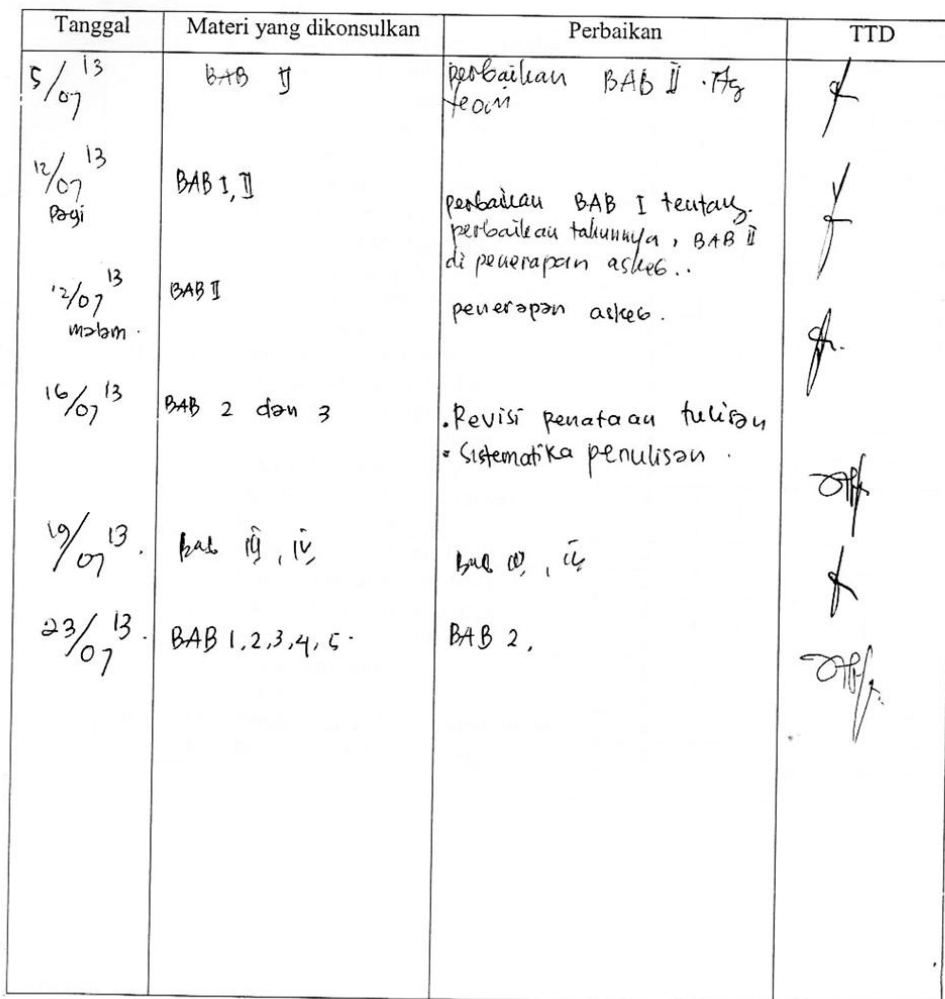 Tanggal Materi yang dikonsulkan Perbaikan TTD
5/07 13 BAB II perbaikan BAB II
teori
12/07 13 BAB I, II
pagi
perbaikan BAB I tentang.
perbaikan tahunnya, BAB II
di penerapan askeb..
12/07 13 BAB II penerapan askeb.
malam.
16/07 13 BAB 2 dan 3 • Revisi penataan tulisan
• Sistematika penulisan.
19/07 13. Bab III, IV Bab III, IV
23/07 13. BAB 1,2,3,4,5. BAB 2,